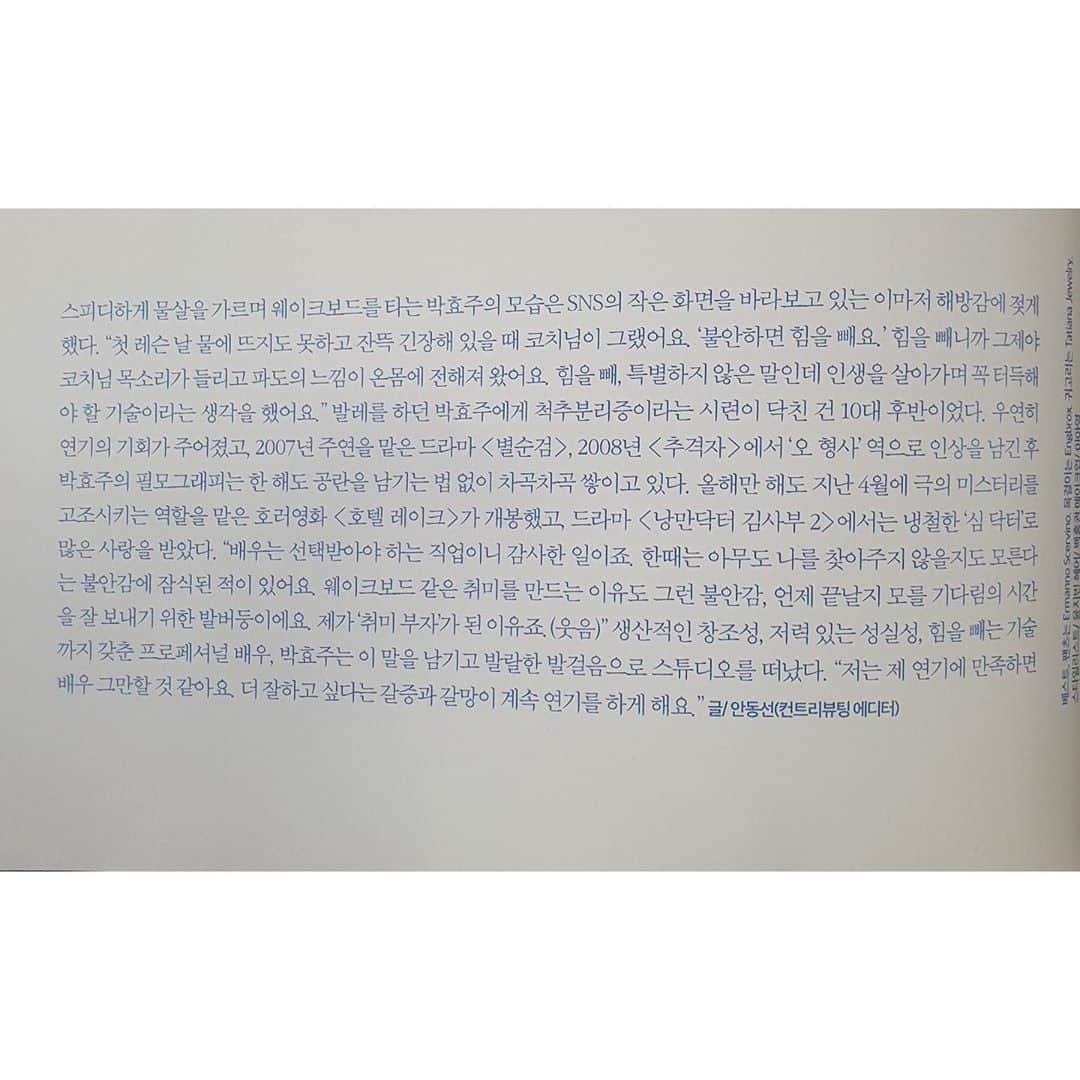 스피디하게 물살을 가르며 웨이크보드를 타는 박효주의 모습은 SNS의 작은 화면을 바라보고 있는 이마저 해방감에 젖게
했다. “첫 레슨 날 물에 뜨지도 못하고 잔뜩 긴장해 있을 때 코치님이 그랬어요. ‘불안하면 힘을 빼요.’ 힘을 빼니까 그제야
코치님 목소리가 들리고 파도의 느낌이 온몸에 전해져 왔어요. 힘을 빼, 특별하지 않은 말인데 인생을 살아가며 꼭 터득해
야 할 기술이라는 생각을 했어요.” 발레를 하던 박효주에게 척추분리증이라는 시련이 닥친 건 10대 후반이었다. 우연히
연기의 기회가 주어졌고, 2007년 주연을 맡은 드라마 <별순검>, 2008년 <추격자>에서 ‘오 형사’ 역으로 인상을 남긴 후
박효주의 필모그래피는 한 해도 공란을 남기는 법 없이 차곡차곡 쌓이고 있다. 올해만 해도 지난 4월에 극의 미스터리를
고조시키는 역할을 맡은 호러영화 <호텔 레이크>가 개봉했고, 드라마 <낭만닥터 김사부 2>에서는 냉철한 ‘심 닥터’로
많은 사랑을 받았다. “배우는 선택받아야 하는 직업이니 감사한 일이죠. 한때는 아무도 나를 찾아주지 않을지도 모른다
는 불안감에 잠식된 적이 있어요. 웨이크보드 같은 취미를 만드는 이유도 그런 불안감, 언제 끝날지 모를 기다림의 시간
을 잘 보내기 위한 발버둥이에요. 제가 ‘취미 부자’가 된 이유죠.(웃음)” 생산적인 창조성, 저력 있는 성실성, 힘을 빼는 기술
까지 갖춘 프로페셔널 배우, 박효주는 이 말을 남기고 발랄한 발걸음으로 스튜디오를 떠났다. “저는 제 연기에 만족하면
배우 그만할 것 같아요. 더 잘하고 싶다는 갈증과 갈망이 계속 연기를 하게 해요.” 글/ 안동선(컨트리뷰팅 에디터)
Ermanno Scervino, Engbrox, Tariana Jewelry.